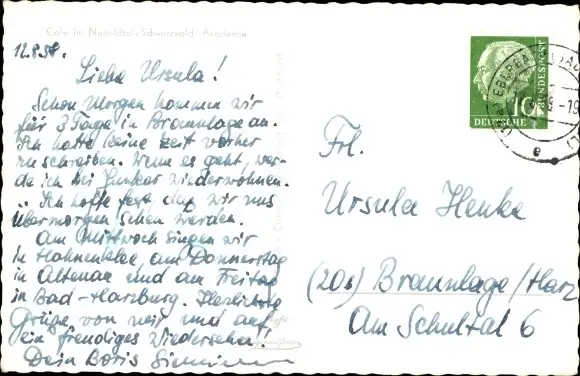 Calw im Nagoldtal, Schwarzwald, Akademie
12.8.58.
Liebe Ursula!
Schon Morgen kommen wir
für 3 Tage in Braunlage an.
Ich hatte keine Zeit vorher
zu schreiben. Wenn es geht, wer-
de ich bei Junker wieder wohnen.
Ich hoffe fest daß wir uns
Übermorgen sehen werden.
Am Mittwoch singen wir
in Hahnenklee, am Donnerstag
in Altenau und am Freitag
in Bad-Harzburg. Herzlichste
Grüße von mir und auf
ein freudiges Wiedersehen.
Dein Boris
Frl.
Ursula Henke
(20b) Braunlage/Harz
Am Schultal 6
10
DEUTSCHE
BUNDESPOST